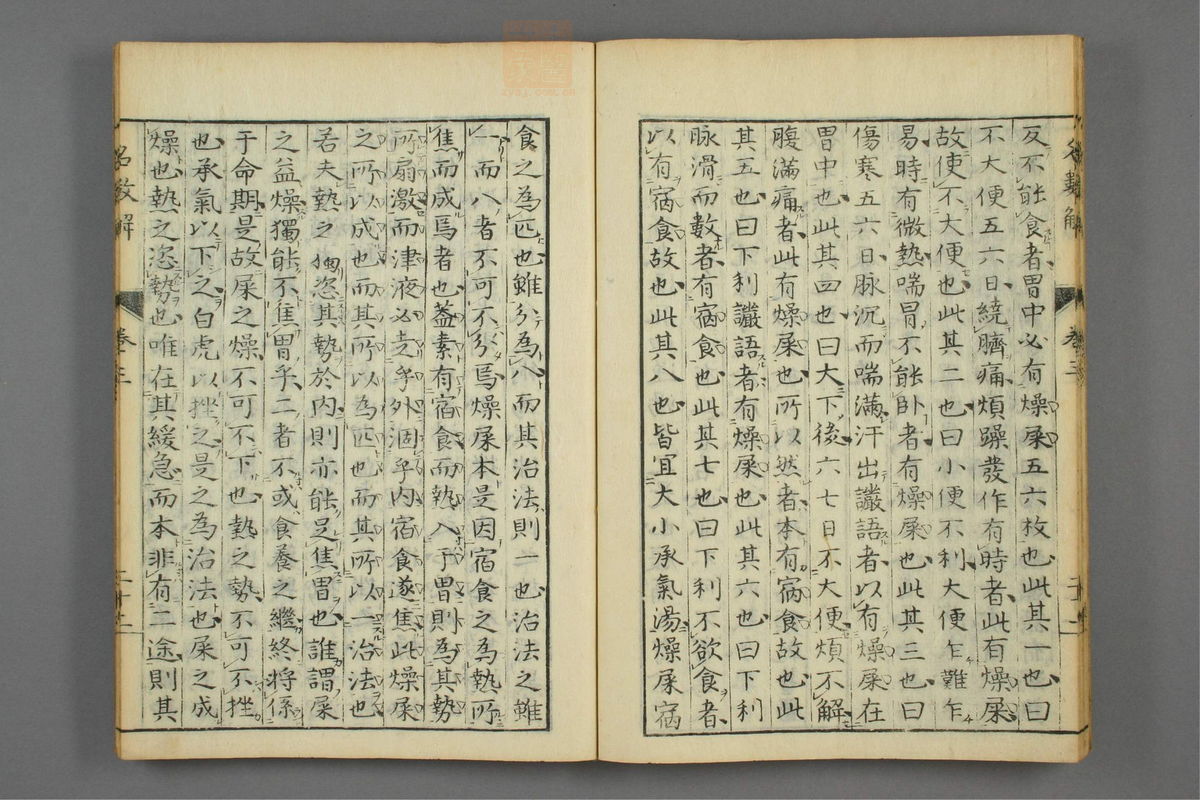 反不能食者胃中必有燥屎五六枚也此其一也曰
不大便五六日繞臍痛煩躁發作有時者此有燥屎
故使不大便也此其二也曰小便不利大便乍難乍
易時有微熱喘冒不能卧者有燥屎也此其三也曰
傷寒五六日脉沉而喘滿汗出讝語者以有燥屎在
胃中也此其四也曰大下後六七日不大便煩不解
腹滿痛者此有燥屎也所以然者本有宿食故也此
其五也曰下利讝語者有燥屎也此其六也曰下利
脉滑而數者有宿食也此其七也曰下利不欲食者
以有宿食故也此其八也皆宜大小承氣湯燥屎宿
食之為匹也雖分為八而其治法則一也治法之雖
一而八者不可不分焉燥屎本是因宿食之為熱所
焦而成焉者也蓋素有宿食而熱入于胃則為其勢
所扇激而津液必走乎外涸乎内宿食遂焦此燥屎
之所以成也而其所以為匹也而其所以一治法也
若夫熱之獨恣其勢於内則亦能足焦胃也誰謂屎
之益燥獨能不焦胃乎二者不或食養之繼終將係
于命期是故屎之燥不可不下也熱之勢不可不挫
也承氣以下之白虎以挫之是之為治法也屎之成
燥也熱之恣勢也唯在其緩急而本非有二途則其
名數解
卷之三